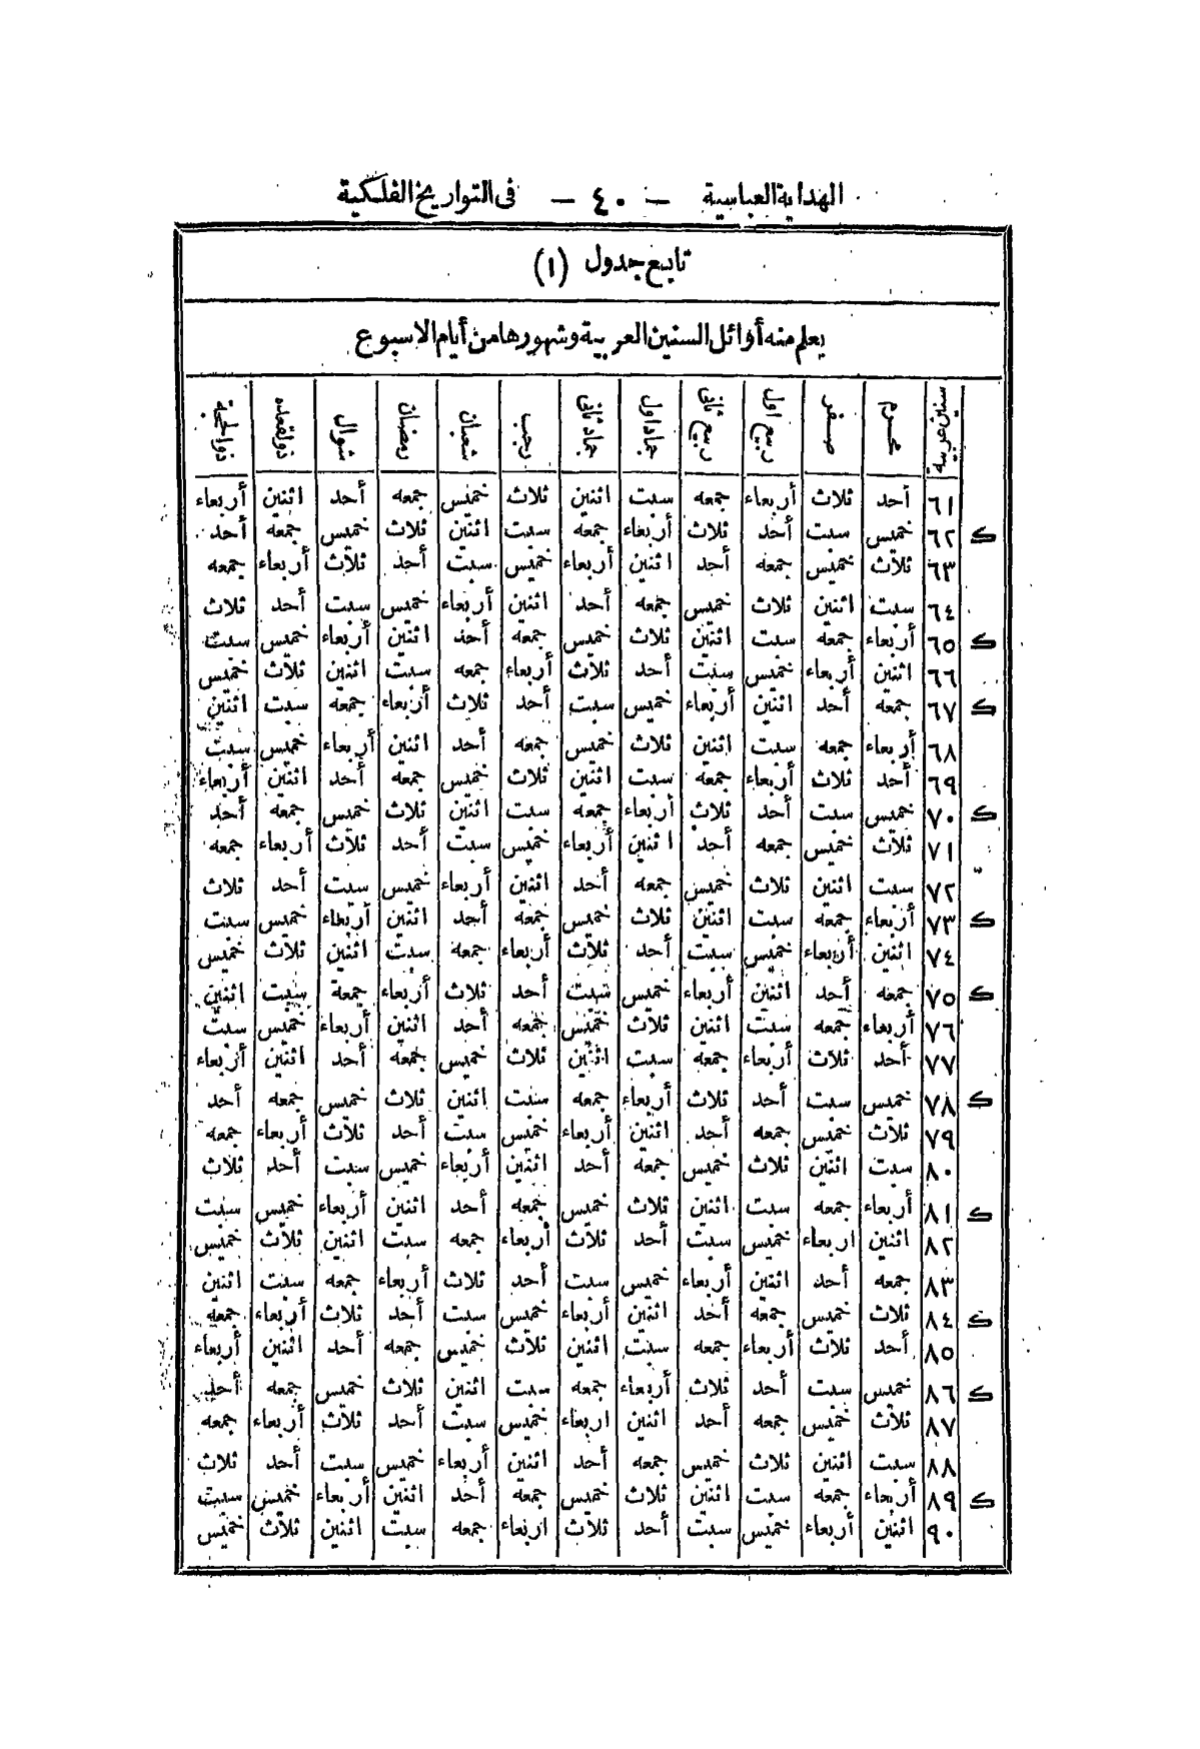 الهداية العباسية — ٤٠ — فى التواريخ الفلكية
تابع جدول (١)
يعلم منه أوائل السنين العربية وشهورها من أيام الاسبوع
سنين عربية محرم صفر ربيع اول ربيع ثانى جماد اول جماد ثانى رجب شعبان رمضان شوال ذو لقعده ذو الحجة
٦١ أحد ثلاث أربعاء جمعه سبت اثنين ثلاث خميس جمعه أحد اثنين أربعاء
ك ٦٢ خميس سبت أحد ثلاث أربعاء جمعه سبت اثنين ثلاث خميس جمعه أحد
٦٣ ثلاث خميس جمعه أحد اثنين أربعاء خميس سبت أحد ثلاث أربعاء جمعه
٦٤ سبت اثنين ثلاث خميس جمعه أحد اثنين أربعاء خميس سبت أحد ثلاث
ك ٦٥ أربعاء جمعه سبت اثنين ثلاث خميس جمعه أحد اثنين أربعاء خميس سبت
٦٦ اثنين أربعاء خميس سبت أحد ثلاث أربعاء جمعه سبت اثنين ثلاث خميس
ك ٦٧ جمعه أحد اثنين أربعاء خميس سبت أحد ثلاث أربعاء جمعه سبت اثنين
٦٨ أربعاء جمعه سبت اثنين ثلاث خميس جمعه أحد اثنين أربعاء خميس سبت
٦٩ أحد ثلاث أربعاء جمعه سبت اثنين ثلاث خميس جمعه أحد اثنين أربعاء
ك ٧٠ خميس سبت أحد ثلاث أربعاء جمعه سبت اثنين ثلاث خميس جمعه أحد
٧١ ثلاث خميس جمعه أحد اثنين أربعاء خميس سبت أحد ثلاث أربعاء جمعه
٧٢ سبت اثنين ثلاث خميس جمعه أحد اثنين أربعاء خميس سبت أحد ثلاث
ك ٧٣ أربعاء جمعه سبت اثنين ثلاث خميس جمعه أحد اثنين أربعاء خميس سبت
٧٤ اثنين أربعاء خميس سبت أحد ثلاث أربعاء جمعه سبت اثنين ثلاث خميس
ك ٧٥ جمعه أحد اثنين أربعاء خميس سبت أحد ثلاث أربعاء جمعة سبت اثنين
٧٦ أربعاء جمعه سبت اثنين ثلاث خميس جمعه أحد اثنين أربعاء خميس سبت
٧٧ أحد ثلاث أربعاء جمعه سبت اثنين ثلاث خميس جمعه أحد اثنين أربعاء
ك ٧٨ خميس سبت أحد ثلاث أربعاء جمعه سبت اثنين ثلاث خميس جمعه أحد
٧٩ ثلاث خميس جمعه أحد اثنين أربعاء خميس سبت أحد ثلاث أربعاء جمعه
٨٠ سبت اثنين ثلاث خميس جمعه أحد اثنين أربعاء خميس سبت أحد ثلاث
ك ٨١ أربعاء جمعه سبت اثنين ثلاث خميس جمعه أحد اثنين أربعاء خميس سبت
٨٢ اثنين اربعاء خميس سبت أحد ثلاث أربعاء جمعه سبت اثنين ثلاث خميس
٨٣ جمعه أحد اثنين أربعاء خميس سبت أحد ثلاث أربعاء جمعه سبت اثنين
ك ٨٤ ثلاث خميس جمعه أحد اثنين أربعاء خميس سبت أحد ثلاث أربعاء جمعه
٨٥ أحد ثلاث أربعاء جمعه سبت اثنين ثلاث خميس جمعه أحد اثنين أربعاء
ك ٨٦ خميس سبت أحد ثلاث أربعاء جمعه سبت اثنين ثلاث خميس جمعه أحد
٨٧ ثلاث خميس جمعه أحد اثنين اربعاء خميس سبت أحد ثلاث أربعاء جمعه
٨٨ سبت اثنين ثلاث خميس جمعه أحد اثنين أربعاء خميس سبت أحد ثلاث
ك ٨٩ أربعاء جمعه سبت اثنين ثلاث خميس جمعه أحد اثنين أربعاء خميس سبت
٩٠ اثنين أربعاء خميس سبت أحد ثلاث اربعاء جمعه سبت اثنين ثلاث خميس